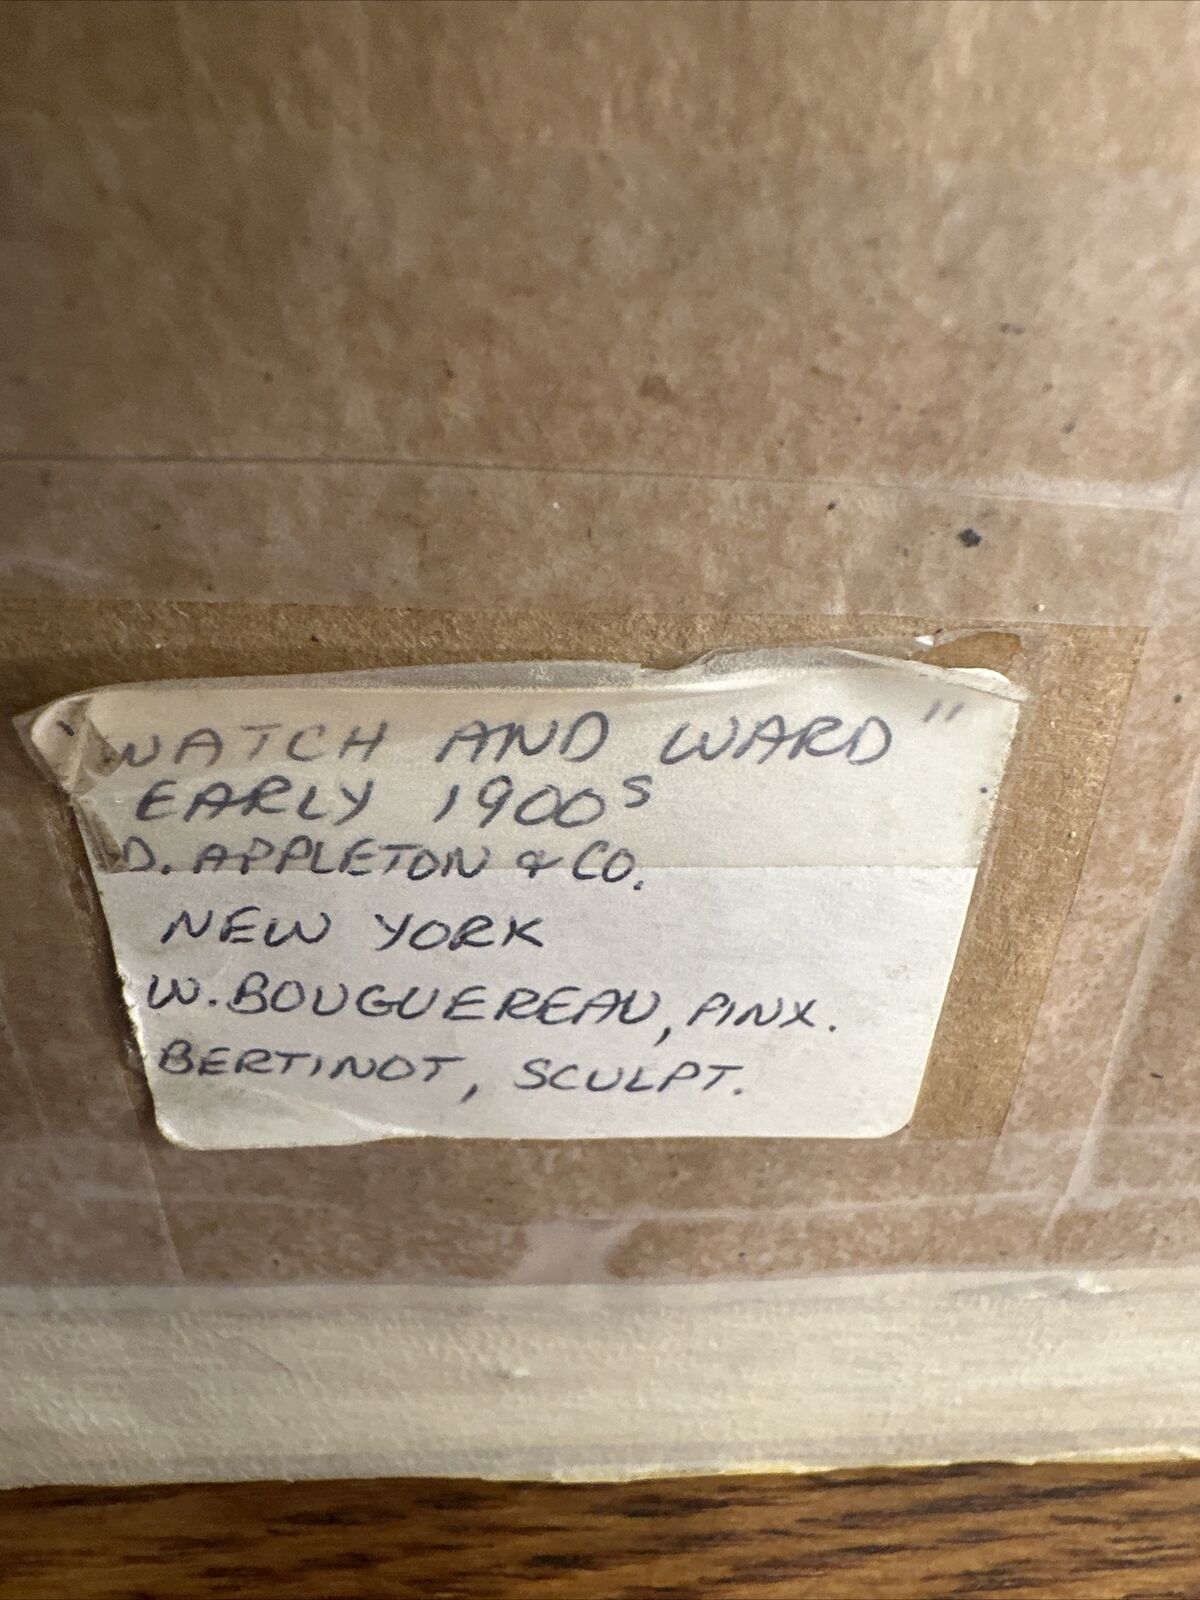 "WATCH AND WARD"
EARLY 1900S
D. APPLETON & CO.
NEW YORK
W. BOUGUEREAU, PINX.
BERTINOT, SCULPT.